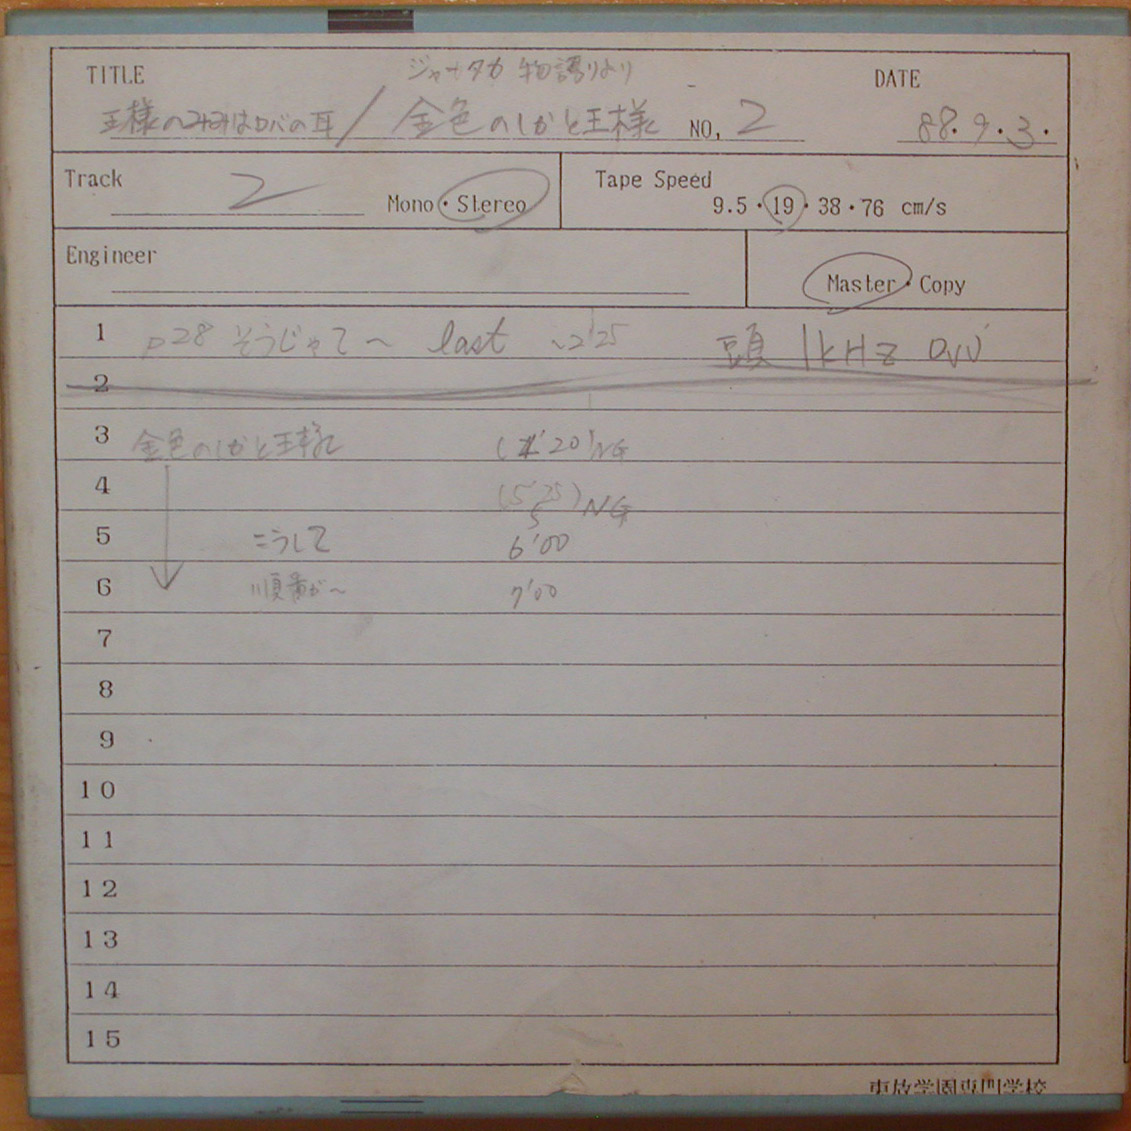 TITLE ジャータカ 物語りより DATE
王様のみみはロバの耳/金色のしかと王様 NO, 2 88.9.3.
Track 2 Mono・Stereo Tape Speed
9.5・19・38・76 cm/s
Engineer
Master・Copy
1 P28 そうじゃて〜 last 〜2'25 頭 1kHz 0VU
2
3 金色のしかと王様 20 NG
4 (5'25) NG
5 こうして 6'00
6 7'00
7
8
9
10
11
12
13
14
15
東放学園専門学校